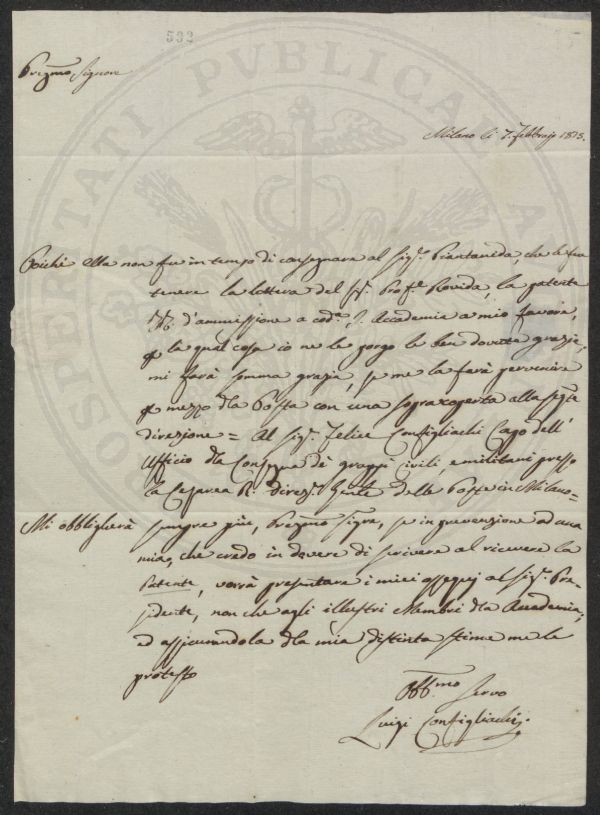 532
Pregmo Signore
Milano li 7. Febbrajo 1815.
Poichè Ella non fu in tempo di consegnare al Sigr. Piantanida, che le fece
tenere la lettera del Sr. Profe Rovida, la patente
d'ammissione a cod.a I. Accademia a mio favore,
la qual cosa io ne le porgo le ben dovute grazie,
mi farà somma grazia, se me la farà pervenire
mezzo dla Posta con una sopracoperta alla segte
direzione = Al Sigr. Felice Configliachi Capo dell'
Ufficio dla Consegna de' gruppi civili, e militari presso
la Cesarea R. direze. Gente delle Poste in Milano-
Mi obbligherà sempre più, Pregmo Sigre, se in prevenzione ad una
mia, che credo in dovere di scrivere al ricevere la
Patente, vorrà presentare i miei ossequj al Sigr. Pre-
sidente, non che agli illustri Membri dla Accademia,
ed assicurandola dla mia distinta stima me le
protesto
Obb.mo Servo
Luigi Configliachi.
PROSPERITATI PUBLICAE A